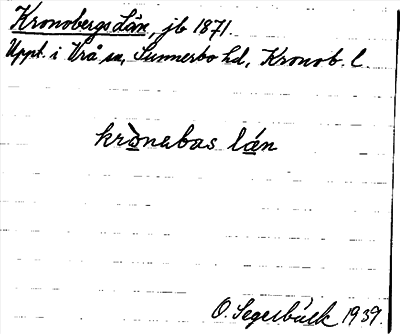 Kronobergs Län, jb 1871.
Uppt. i Vrå sn, Sunnerbo hd, Kronob. l.
krònabas lán
O. Segerbäck 1939.